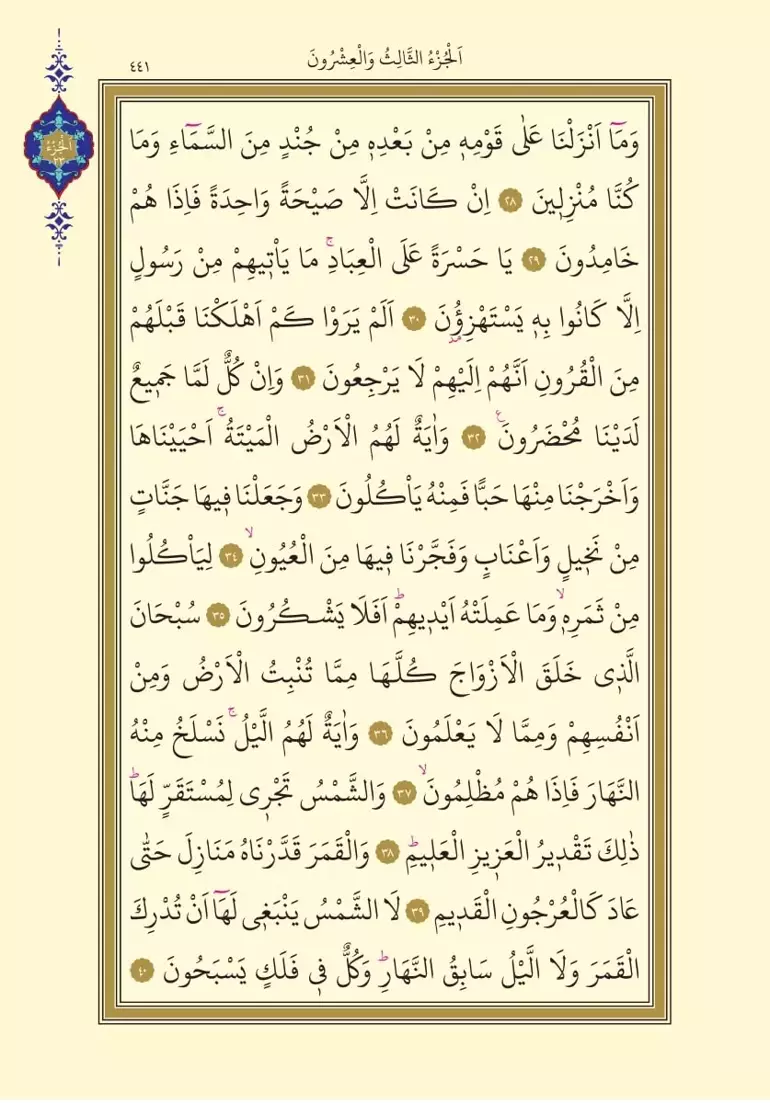 اَلْجُزْءُ الثَّالِثُ وَالْعِشْرُونَ
٤٤١
اَلْجُزْءُ
٢٣
وَمَٓا اَنْزَلْنَا عَلٰى قَوْمِه۪ مِنْ بَعْدِه۪ مِنْ جُنْدٍ مِنَ السَّمَٓاءِ وَمَا
كُنَّا مُنْزِل۪ينَ ٢٨ اِنْ كَانَتْ اِلَّا صَيْحَةً وَاحِدَةً فَاِذَا هُمْ
خَامِدُونَ ٢٩ يَا حَسْرَةً عَلَى الْعِبَادِۚ مَا يَأْت۪يهِمْ مِنْ رَسُولٍ
اِلَّا كَانُوا بِه۪ يَسْتَهْزِؤُ۫نَ ٣٠ اَلَمْ يَرَوْا كَمْ اَهْلَكْنَا قَبْلَهُمْ
مِنَ الْقُرُونِ اَنَّهُمْ اِلَيْهِمْ لَا يَرْجِعُونَ ٣١ وَاِنْ كُلٌّ لَمَّا جَم۪يعٌ
لَدَيْنَا مُحْضَرُونَ۟ ٣٢ وَاٰيَةٌ لَهُمُ الْاَرْضُ الْمَيْتَةُۚ اَحْيَيْنَاهَا
وَاَخْرَجْنَا مِنْهَا حَبًّا فَمِنْهُ يَأْكُلُونَ ٣٣ وَجَعَلْنَا ف۪يهَا جَنَّاتٍ
مِنْ نَخ۪يلٍ وَاَعْنَابٍ وَفَجَّرْنَا ف۪يهَا مِنَ الْعُيُونِۙ ٣٤ لِيَأْكُلُوا
مِنْ ثَمَرِه۪ۙ وَمَا عَمِلَتْهُ اَيْد۪يهِمْۜ اَفَلَا يَشْكُرُونَ ٣٥ سُبْحَانَ
الَّذ۪ي خَلَقَ الْاَزْوَاجَ كُلَّهَا مِمَّا تُنْبِتُ الْاَرْضُ وَمِنْ
اَنْفُسِهِمْ وَمِمَّا لَا يَعْلَمُونَ ٣٦ وَاٰيَةٌ لَهُمُ الَّيْلُۚ نَسْلَخُ مِنْهُ
النَّهَارَ فَاِذَا هُمْ مُظْلِمُونَۙ ٣٧ وَالشَّمْسُ تَجْر۪ي لِمُسْتَقَرٍّ لَهَاۜ
ذٰلِكَ تَقْد۪يرُ الْعَز۪يزِ الْعَل۪يمِۜ ٣٨ وَالْقَمَرَ قَدَّرْنَاهُ مَنَازِلَ حَتّٰى
عَادَ كَالْعُرْجُونِ الْقَد۪يمِ ٣٩ لَا الشَّمْسُ يَنْبَغ۪ي لَهَٓا اَنْ تُدْرِكَ
الْقَمَرَ وَلَا الَّيْلُ سَابِقُ النَّهَارِۜ وَكُلٌّ ف۪ي فَلَكٍ يَسْبَحُونَ ٤٠